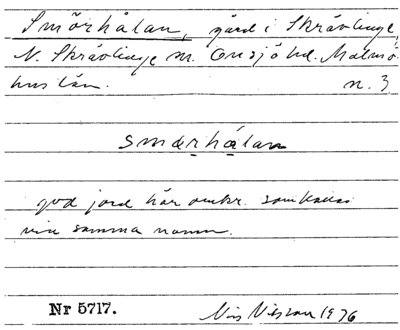 Smörhålan, gård i Skrävlinge,
N. Skrävlinge sn. Onsjö hd. Malmö-
hus län. n. 3
smærhålan
god jord här omkr. som kallas
vid samma namn.
Nr 5717. Nils Nilsson 1936